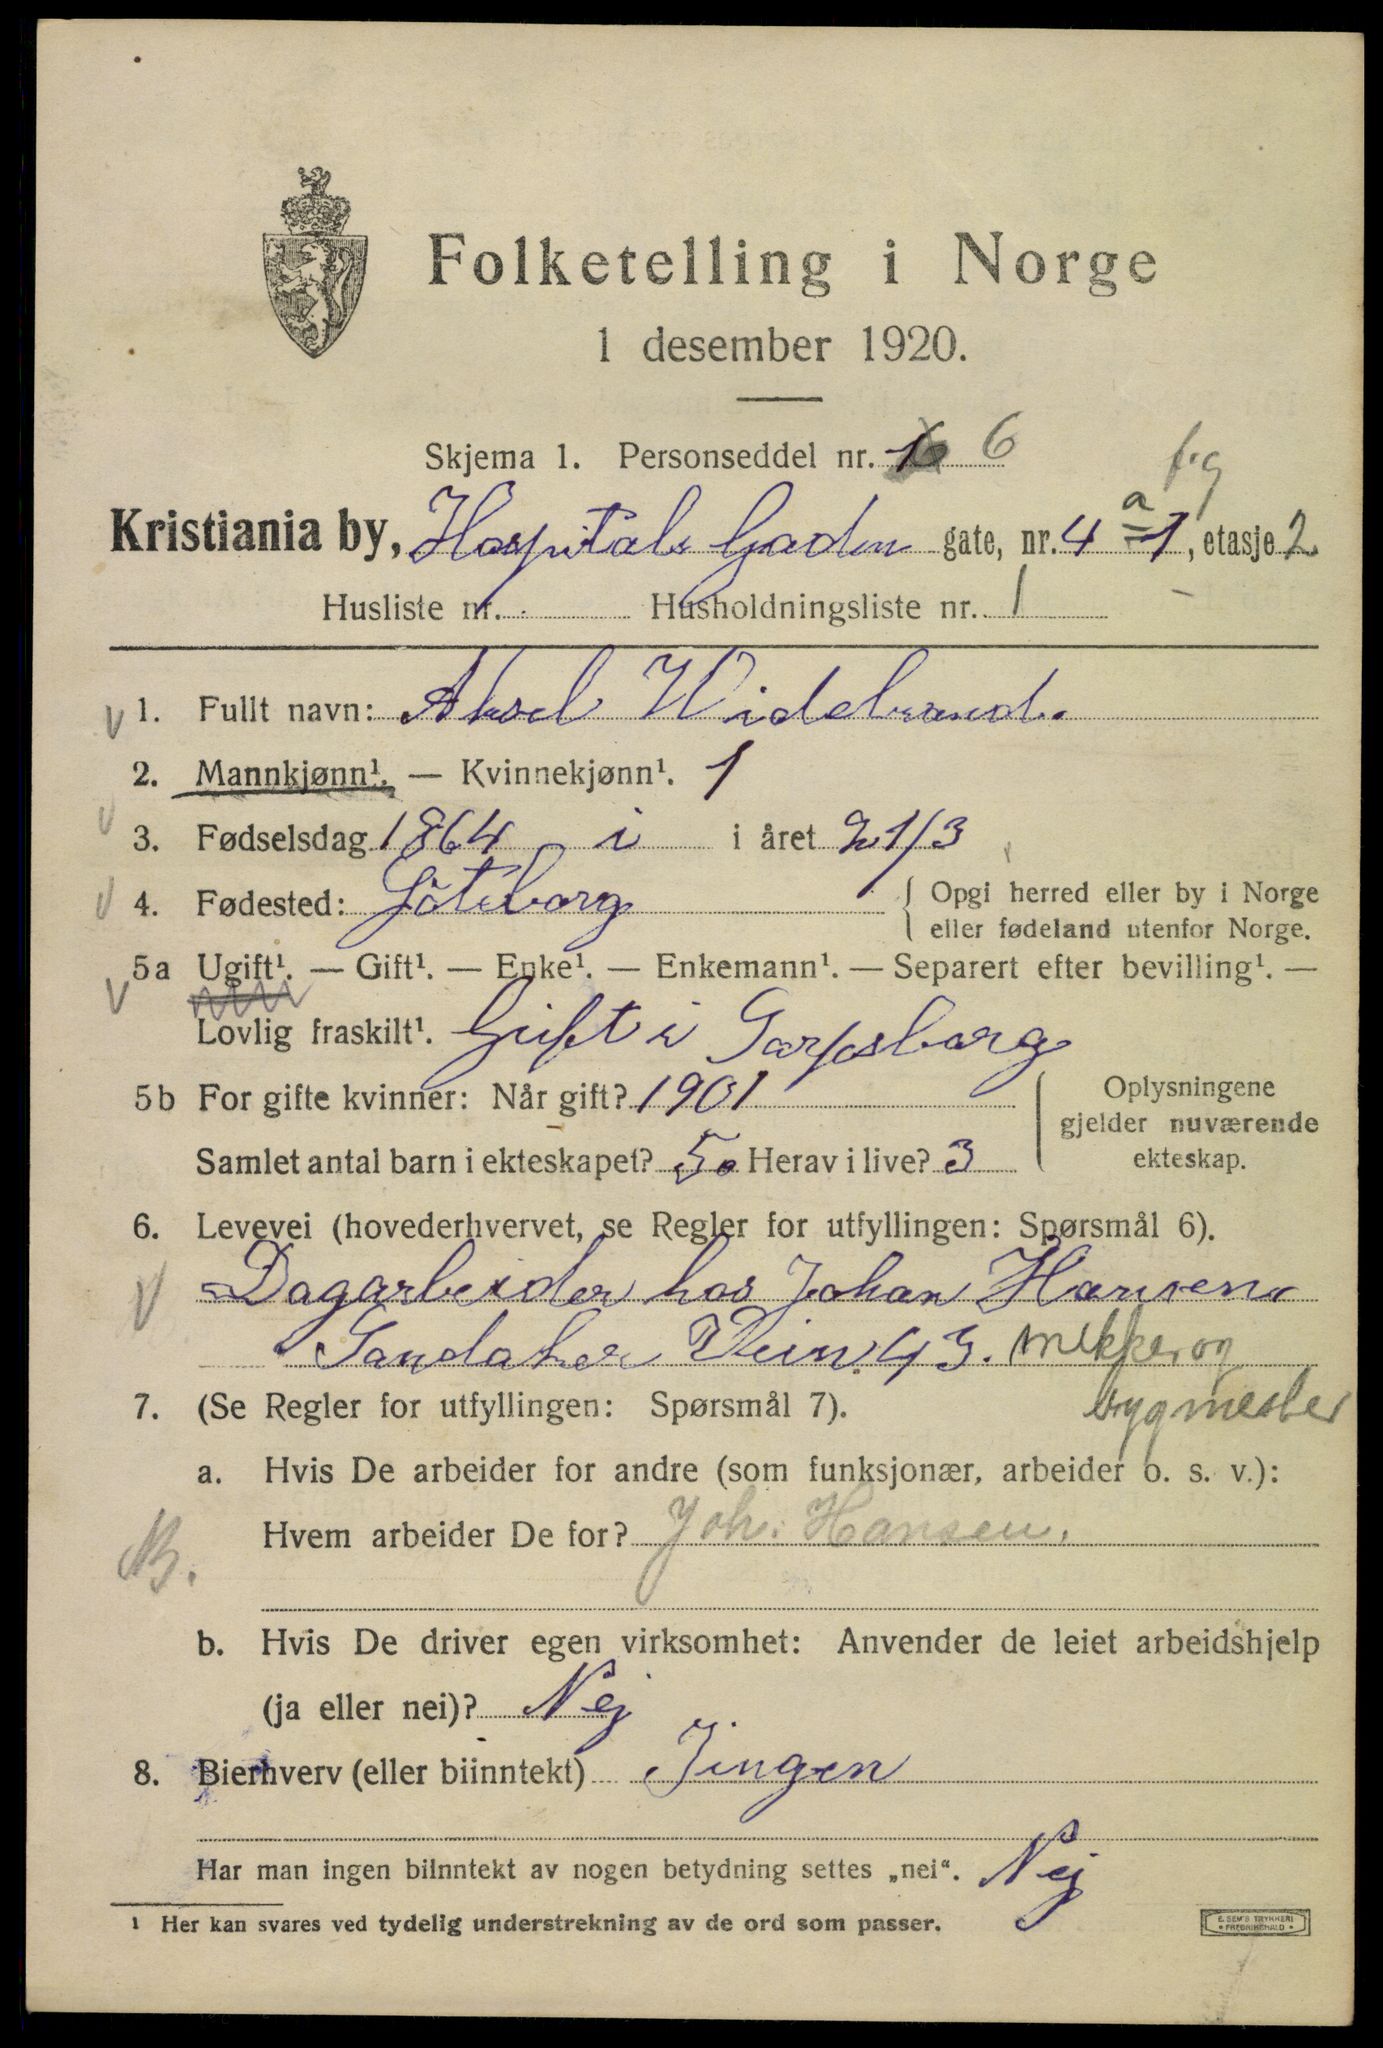 Folketelling i Norge
1 desember 1920.
Skjema 1. Personseddel nr. 16 6
f.g
Kristiania by, Hospitals Gaden gate, nr. 4 a = 1, etasje 2
Husliste nr. Husholdningsliste nr. 1
1. Fullt navn: Aksel Widebrand.
2. Mannkjønn¹. — Kvinnekjønn¹. 1
3. Fødselsdag 1864 i i året 21/3
4. Fødested: Göteborg { Opgi herred eller by i Norge
eller fødeland utenfor Norge.
5a Ugift¹. — Gift¹. — Enke¹. — Enkemann¹. — Separert efter bevilling¹. —
Lovlig fraskilt¹. Gift i Sarpsborg
5b For gifte kvinner: Når gift? 1901
Samlet antal barn i ekteskapet? 5. Herav i live? 3
Oplysningene
gjelder nuværende
ekteskap.
6. Levevei (hovederhvervet, se Regler for utfyllingen: Spørsmål 6).
Dagarbeider hos Johan Hansen
Sandaker Vein 43. mekker og
bygmester
7. (Se Regler for utfyllingen: Spørsmål 7).
a. Hvis De arbeider for andre (som funksjonær, arbeider o. s. v.):
Hvem arbeider De for? Joh. Hansen.
b. Hvis De driver egen virksomhet: Anvender de leiet arbeidshjelp
(ja eller nei)? Nej
8. Bierhverv (eller biinntekt) Jingen
Har man ingen biinntekt av nogen betydning settes „nei“. Nej
¹ Her kan svares ved tydelig understrekning av de ord som passer.
E. SEM'S TRYKKERI
• FREDRIKSHALD •